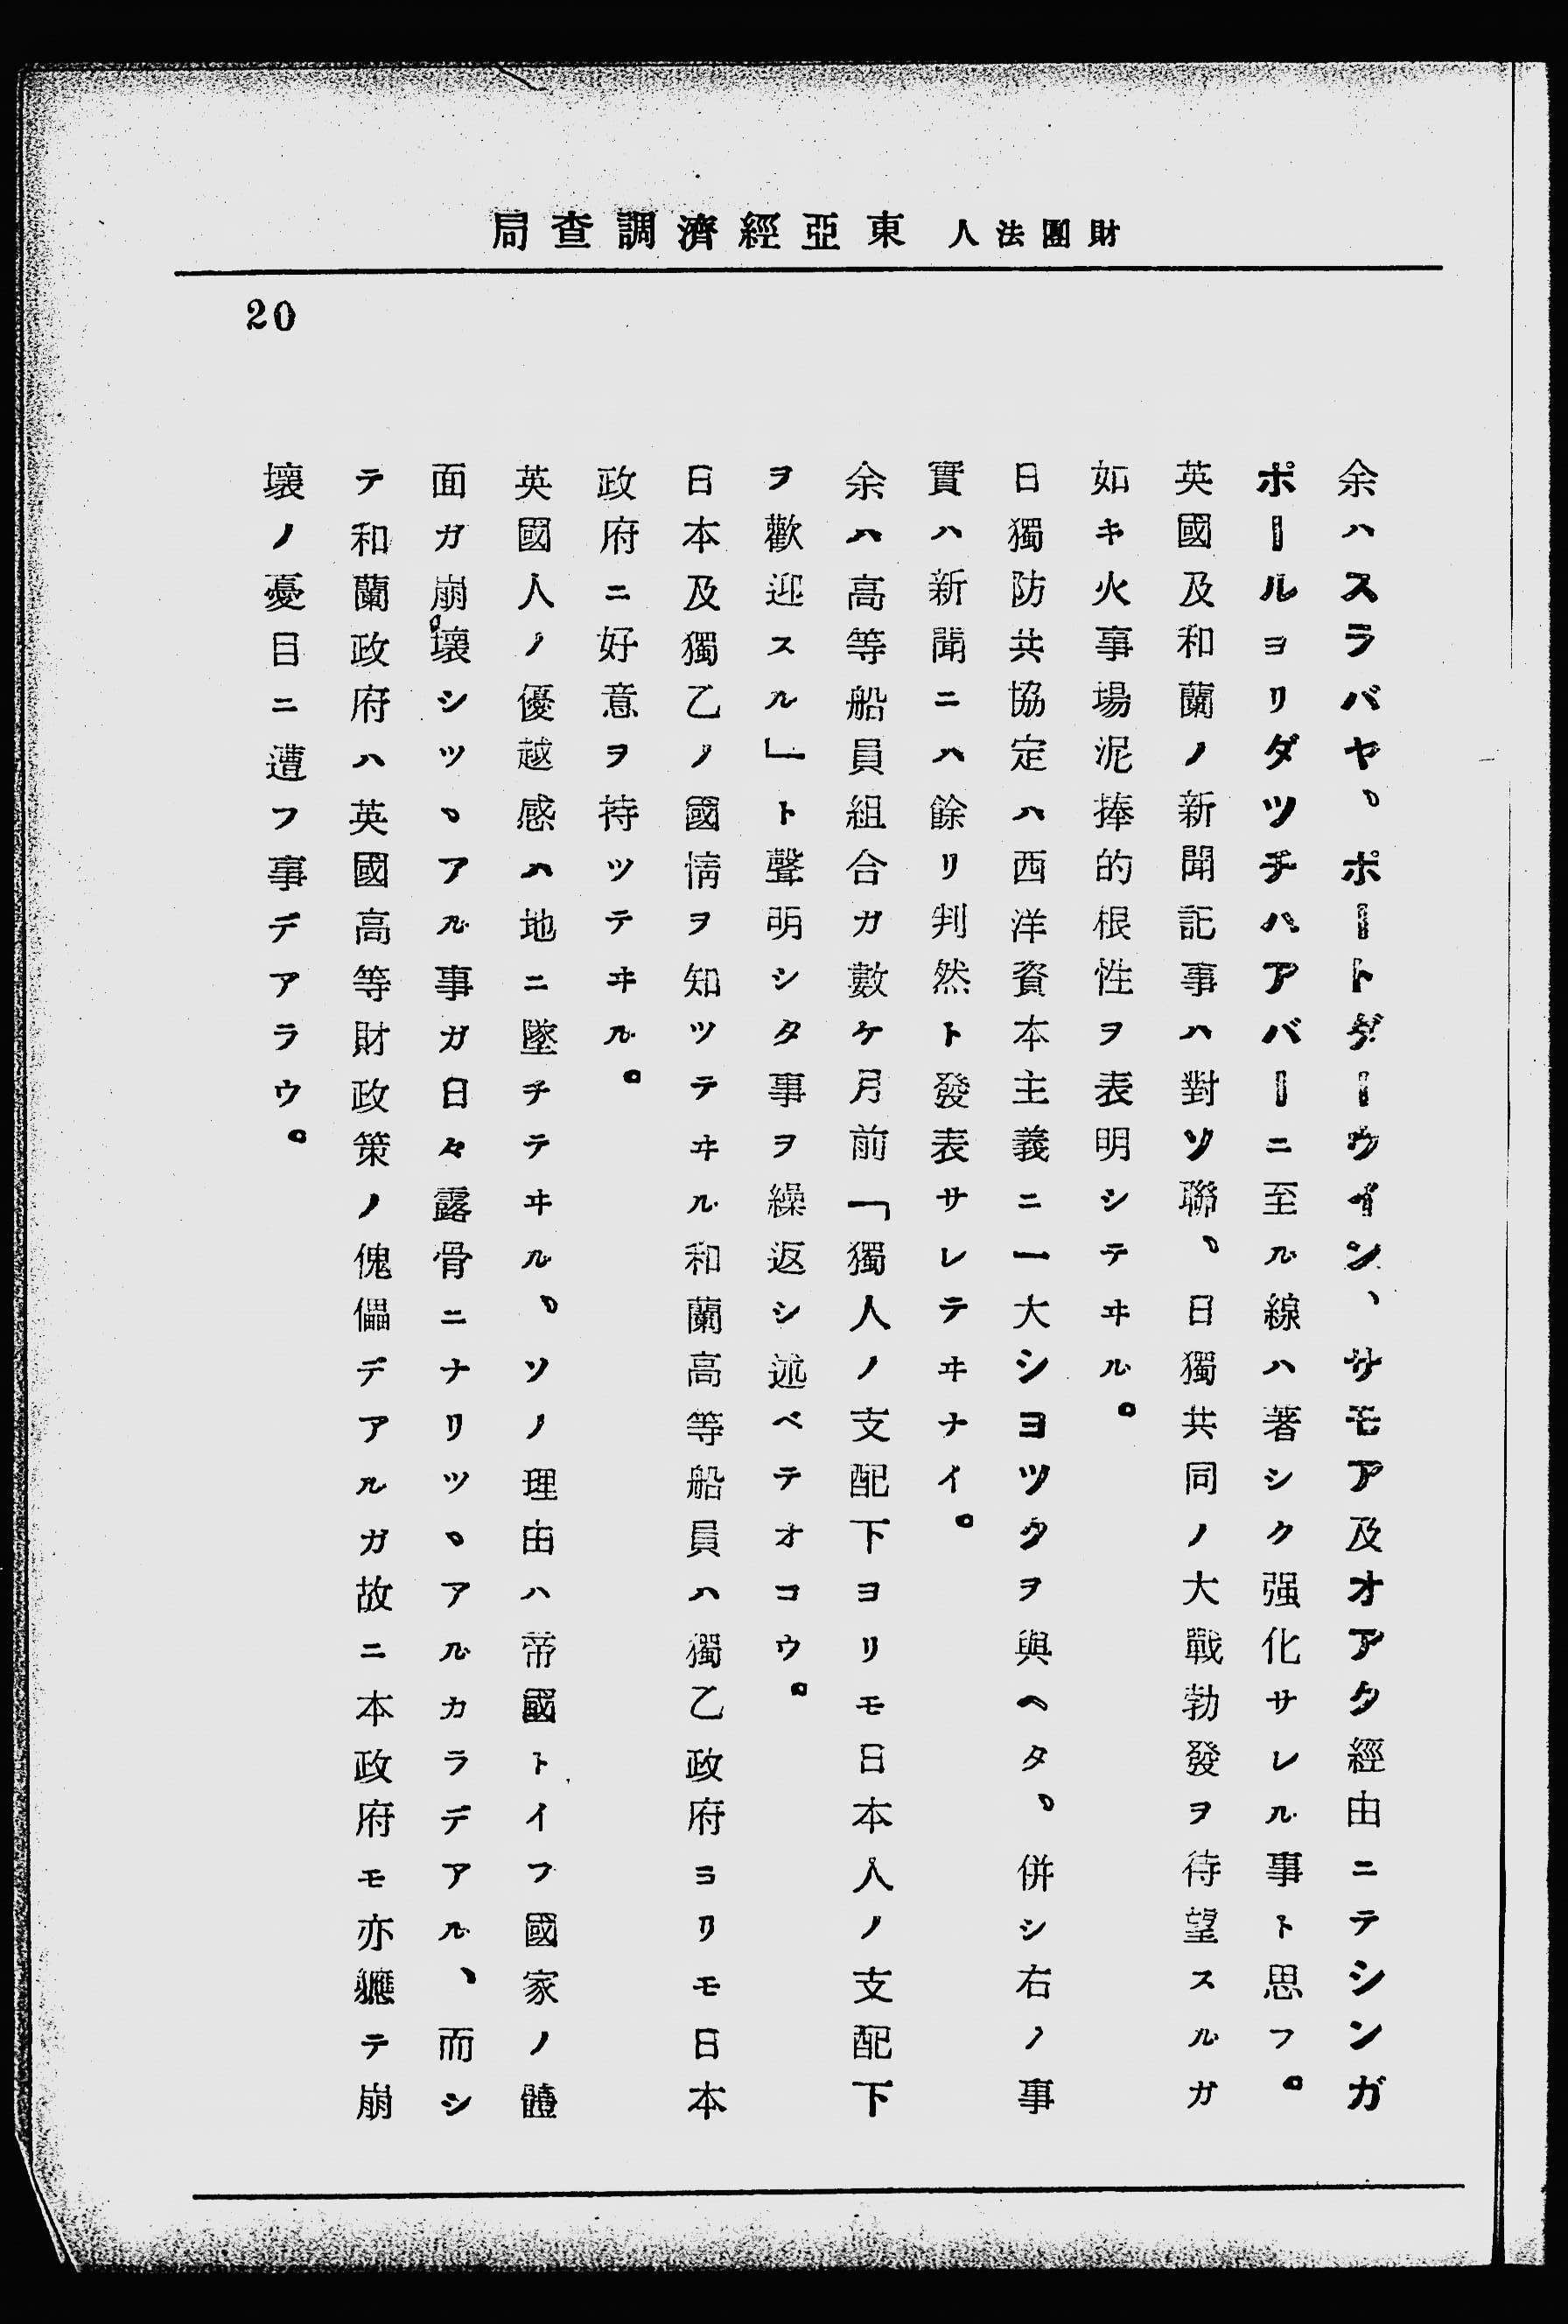 財團法人 東亞經濟調査局
20
余ハスラバヤ、ポートダーウヰン、サモア及オアタ經由ニテシンガ
ポールヨリダツチハアバーニ至ル線ハ著シク强化サレル事ト思フ。
英國及和蘭ノ新聞記事ハ對ソ聯、日獨共同ノ大戰勃發ヲ待望スルガ
如キ火事場泥捧的根性ヲ表明シテヰル。
日獨防共協定ハ西洋資本主義ニ一大シヨツクヲ與ヘタ、併シ右ノ事
實ハ新聞ニハ餘リ判然ト發表サレテヰナイ。
余ハ高等船員組合ガ數ケ月前「獨人ノ支配下ヨリモ日本人ノ支配下
ヲ歡迎スル」ト聲明シタ事ヲ繰返シ述ベテオコウ。
日本及獨乙ノ國情ヲ知ツテヰル和蘭高等船員ハ獨乙政府ヨリモ日本
政府ニ好意ヲ持ツテヰル。
英國人ノ優越感ハ地ニ墜チテヰル、ソノ理由ハ帝國トイフ國家ノ體
面ガ崩壞シツヽアル事ガ日々露骨ニナリツヽアルカラデアル、而シ
テ和蘭政府ハ英國高等財政策ノ傀儡デアルガ故ニ本政府モ亦軈テ崩
壞ノ憂目ニ遭フ事デアラウ。